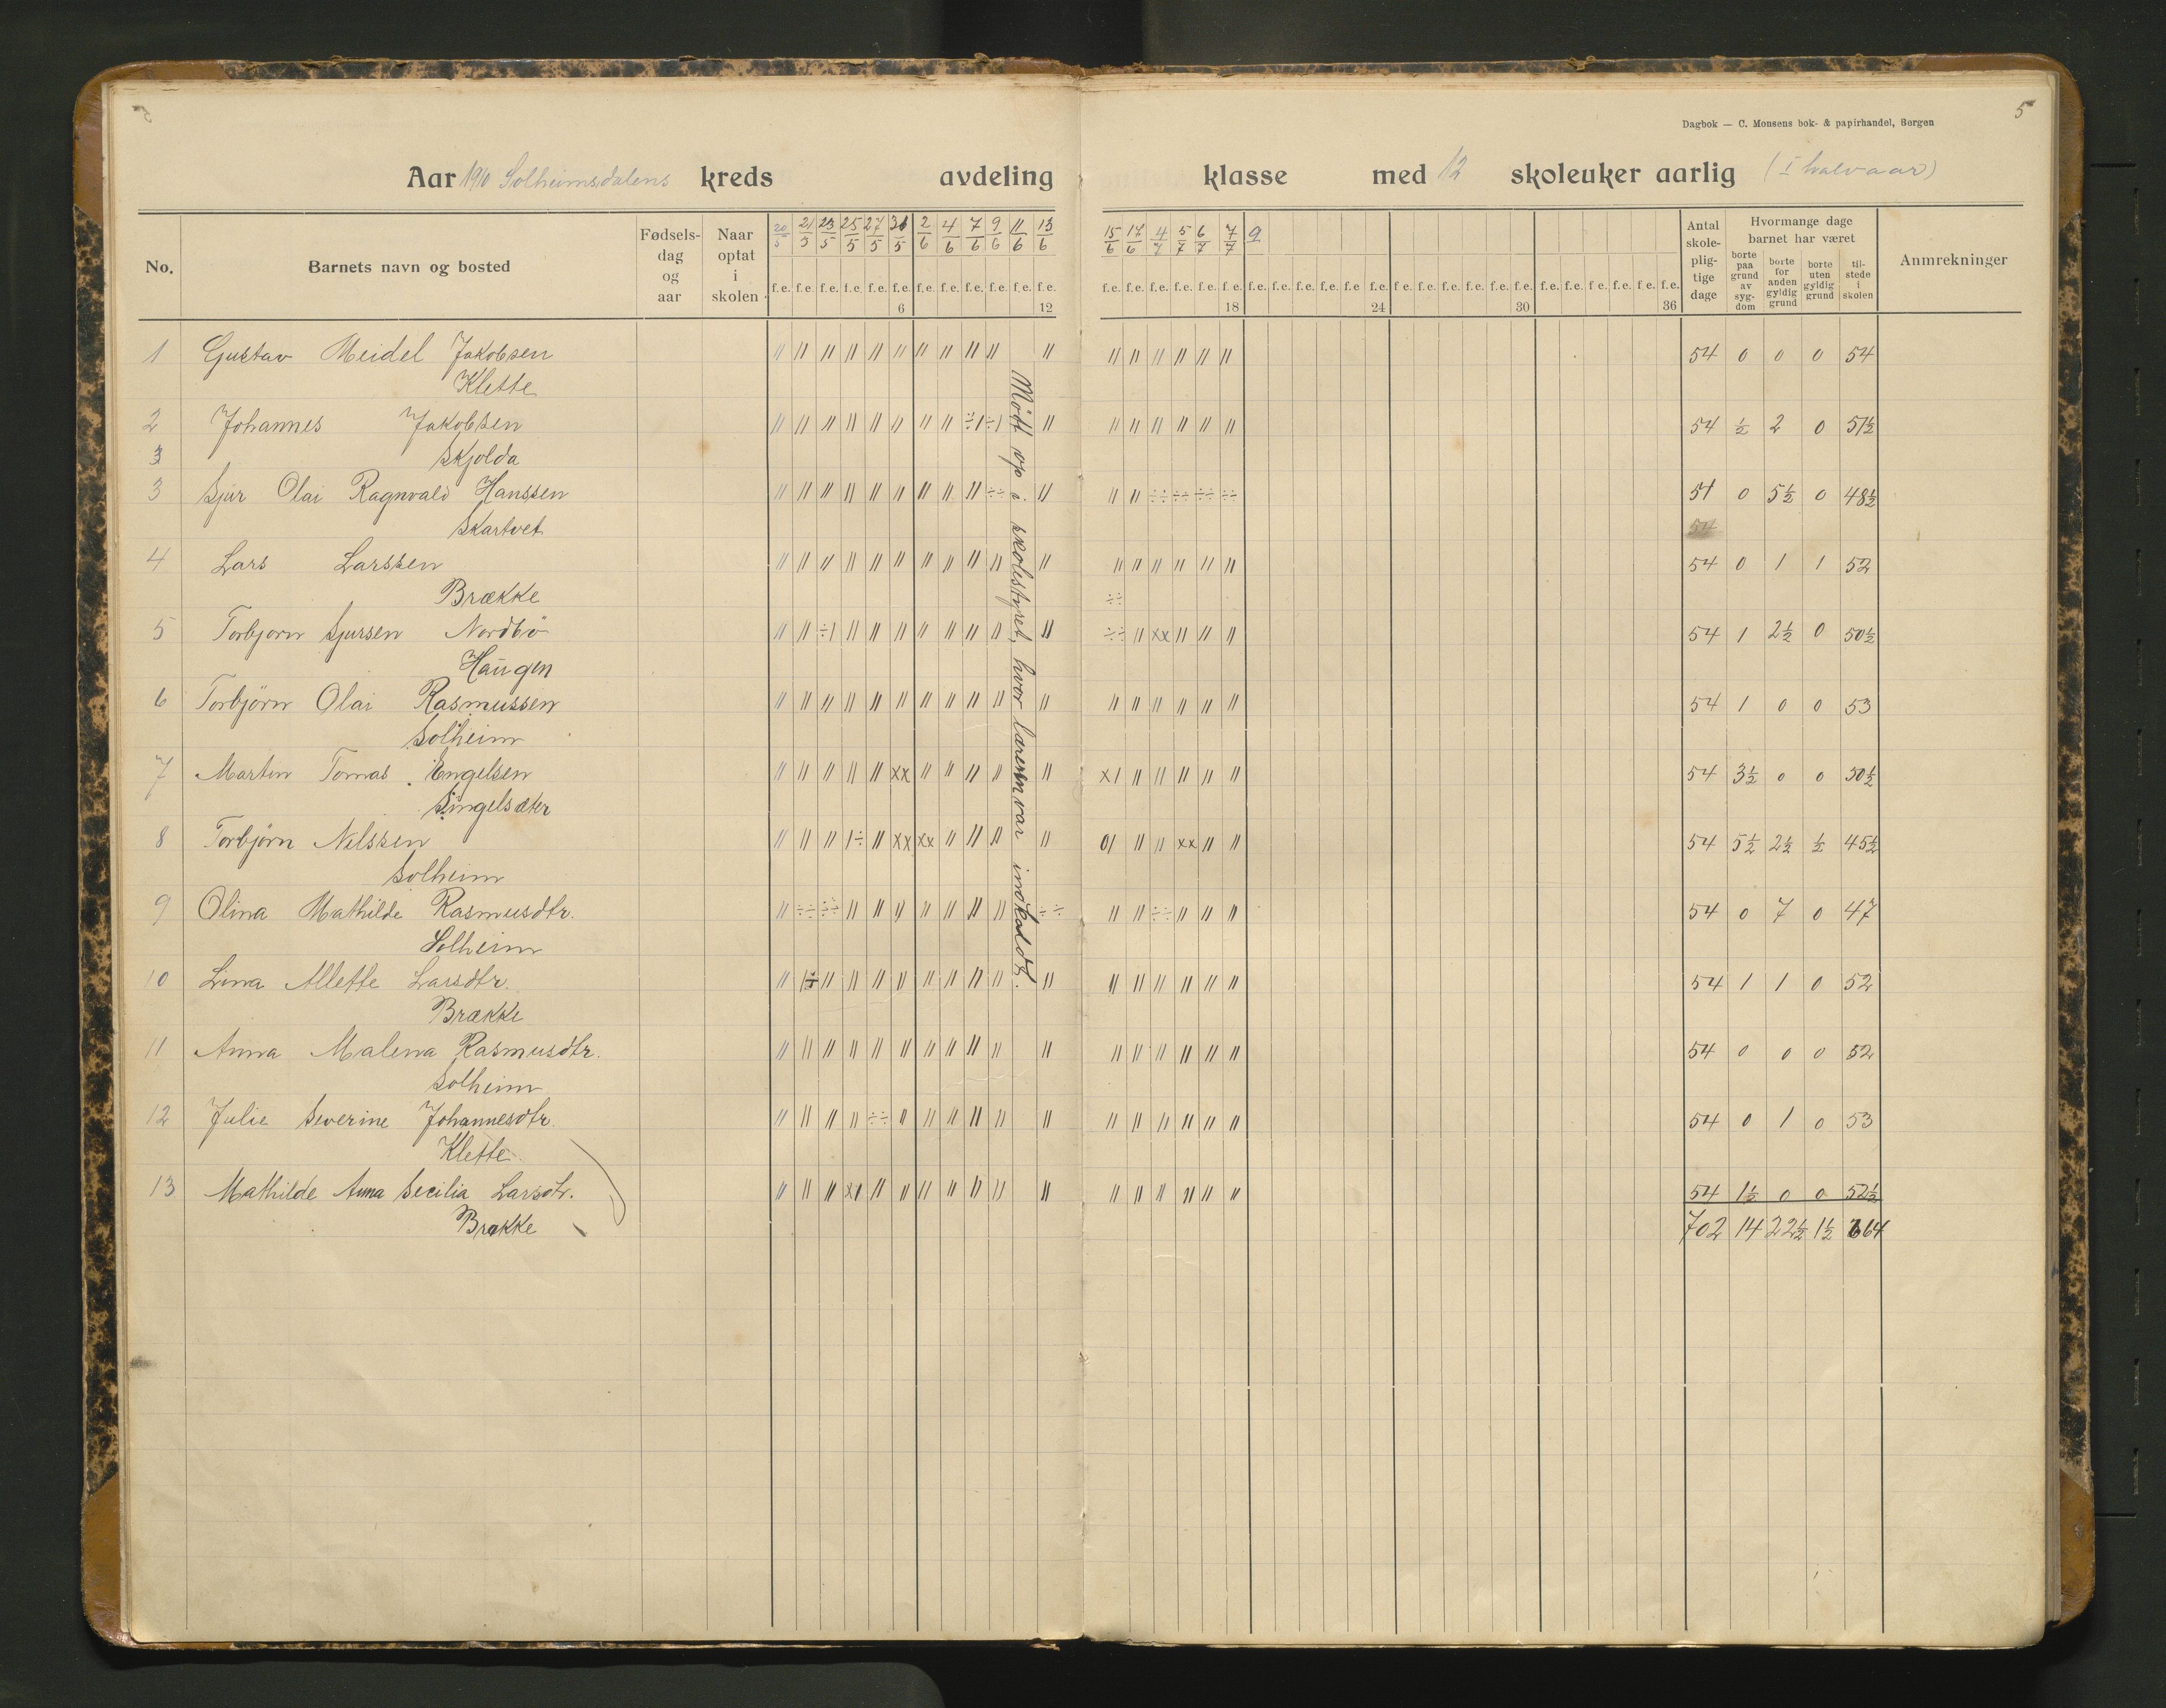 5
Dagbok — C. Monsens bok- & papirhandel, Bergen
Aar 1910 Solheimsdalens kreds avdeling klasse med 12 skoleuker aarlig (I halvaar)
No. Barnets navn og bosted Fødsels-dag og aar Naar optat i skolen 20/5 21/5 23/5 25/5 27/5 31/5 2/6 4/6 7/6 9/6 11/6 13/6 15/6 17/6 4/7 5/7 6/7 7/7 9 Antal skole-plig-tige dage Hvormange dage barnet har været Anmrekninger
borte paa grund av syg-dom borte for anden gyldig grund borte uten gyldig grund til-stede i skolen
f.e. f.e. f.e. f.e. f.e. f.e. f.e. f.e. f.e. f.e. f.e. f.e. f.e. f.e. f.e. f.e. f.e. f.e. f.e. f.e. f.e. f.e. f.e. f.e. f.e. f.e. f.e. f.e. f.e. f.e. f.e. f.e. f.e. f.e. f.e. f.e.
6 12 18 24 30 36
1 Gustav Meidel Jakobsen // // // // // // // // // // // // // // // // // 54 0 0 0 54
Klette
2 Johannes Jakobsen // // // // // // // // ÷/ ÷/ // // // // // // // 54 ½ 2 0 51½
3 Skjolda
3 Sjur Olai Ragnvald Hanssen // // // // // // // // // ÷÷ // // // ÷÷ ÷÷ ÷÷ ÷÷ 54 0 5½ 0 48½
Skartvet 54
4 Lars Larssen // // // // // // // // // // // // // // // // // 54 0 1 1 52
Brække ÷÷
5 Torbjorn Sjursen Nordbö // // ÷/ // // // // // // // // ÷÷ // xx // // // 54 1 2½ 0 50½
Haugen
6 Torbjörn Olai Rasmussen // // // // // // // // // // // // // // // // // 54 1 0 0 53
Solheim
7 Martin Tomas Engelsen // // // // // xx // // // // // x/ // // // // // 54 3½ 0 0 50½
Singelsæter
8 Torbjörn Nelssen // // // /÷ // xx xx // // // // 0/ // // xx // // 54 5½ 2½ ½ 45½
Solheim
9 Olina Mathilde Rasmusdtr. // ÷÷ ÷÷ // // // // // // // ÷÷ // // ÷÷ // // // 54 0 7 0 47
Solheim
10 Lina Allette Larsdtr. // /÷ // // // // // // // // // // // // // // // 54 1 1 0 52
Brække
11 Anna Malena Rasmusdtr. // // // // // // // // // // // // // // // // // 54 0 0 0 52
Solheim
12 Julie Severine Johannesdtr. // // // // ÷÷ // // // // // // // // // // // // 54 0 1 0 53
Klette
13 Mathilde Anna Secilia Larsdtr. // // // x/ // // // // // // // // // // // // // 54 1½ 0 0 52½
Brække 702 14 22½ 1½ 664
Mödt op i skolestyret, hvor læreren var indkaldt.